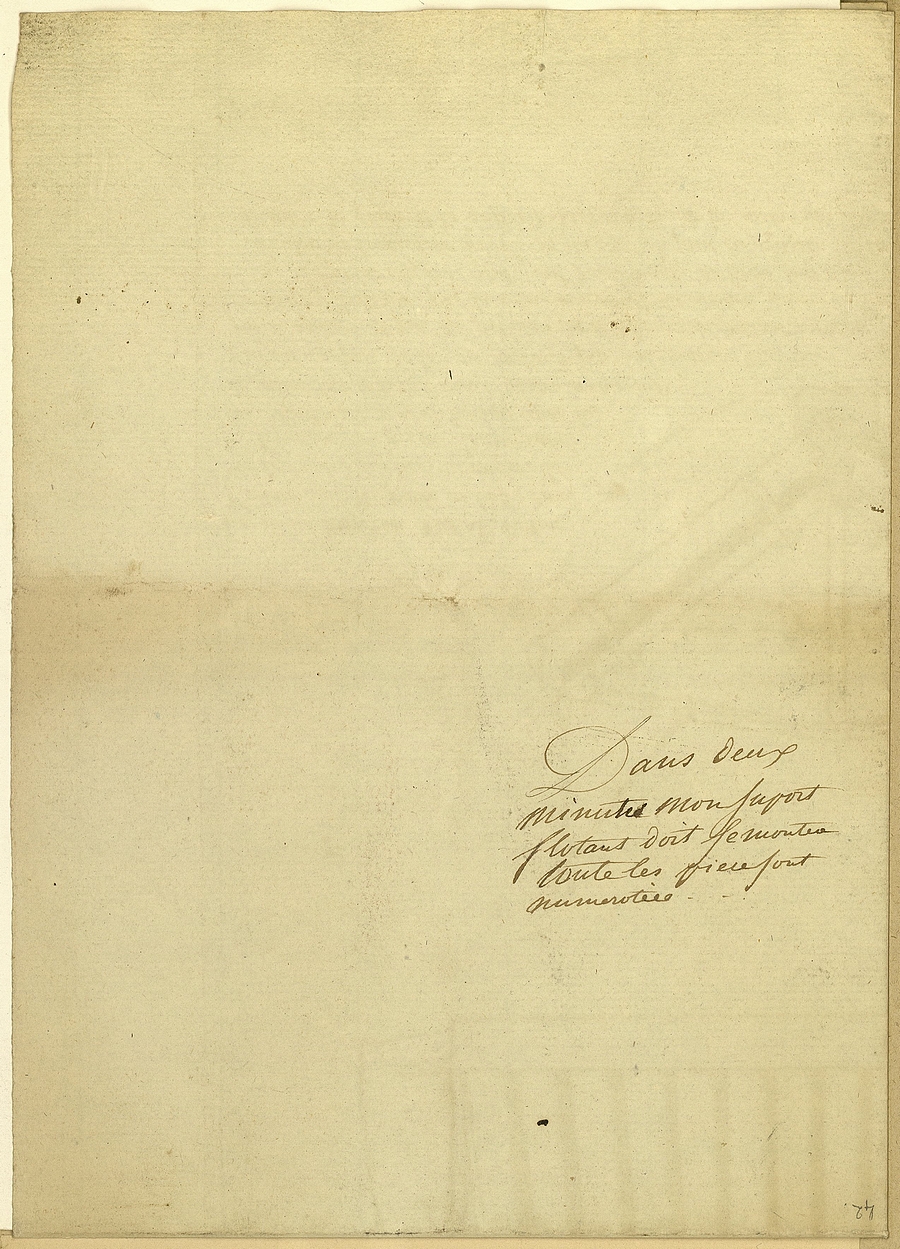 Dans deux
minutes mon suport
flotant doit se monter
toute les piece sont
numerotées - - -
42